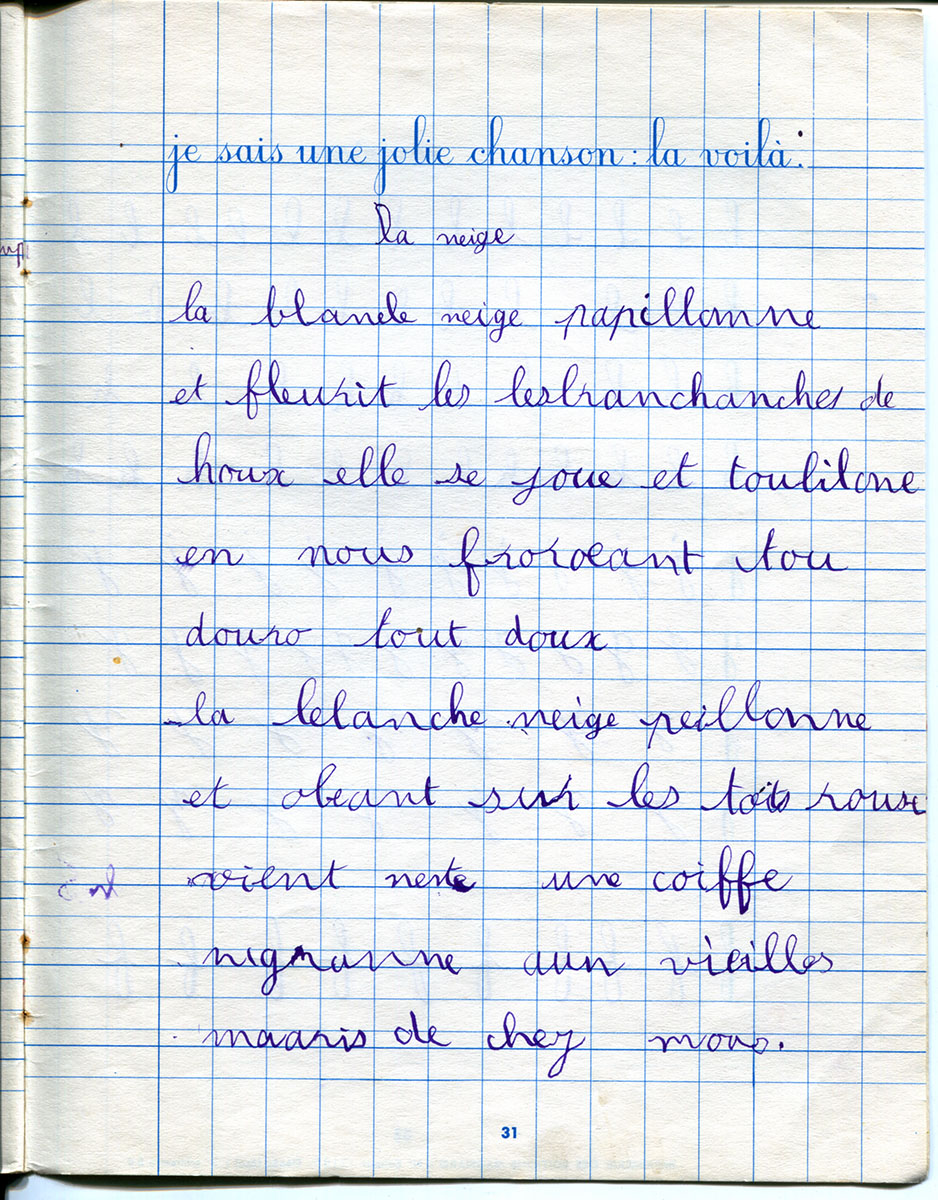 je sais une jolie chanson : la voilà :
la neige
la blanche neige papillonne
et fleurit les lesbranchanches de
houx elle se joue et toulilone
en nous froroeant tou
douro tout doux
la lelanche neige peillonne
et obeant sur les toits roux
vient nente une coiffe
nignanne aun vieilles
maaris de chez mous.
31